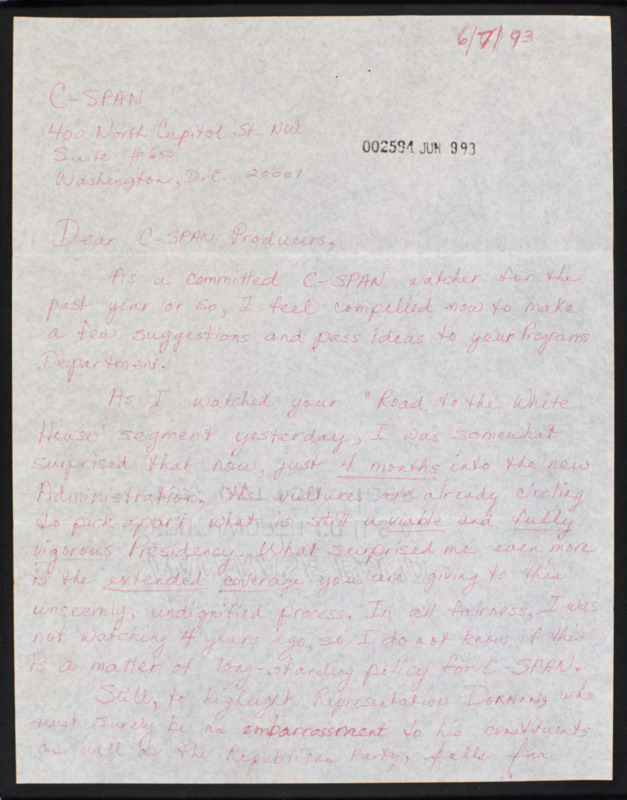 6/7/93
C-SPAN
400 North Capitol St. NW
Suite #650
Washington, D.C. 20001
002594 JUN 993
Dear C-SPAN Producers,
As a committed C-SPAN watcher for the
past year or so, I feel compelled now to make
a few suggestions and pass ideas to your Programs
Department.
As I watched your "Road to the White
House" segment yesterday, I was somewhat
surprised that now, just 4 months into the new
Administration, the vultures are already circling
to pick apart what is still a viable and fully
vigorous Presidency. What surprised me even more
is the extended coverage you are giving to this
unseemly, undignified process. In all fairness, I was
not watching 4 years ago, so I do not know if this
is a matter of long-standing policy for C-SPAN.
Still, to highlight Representative who
must surely be an embarrassment to his constituents
as well as the Republican Party, falls far